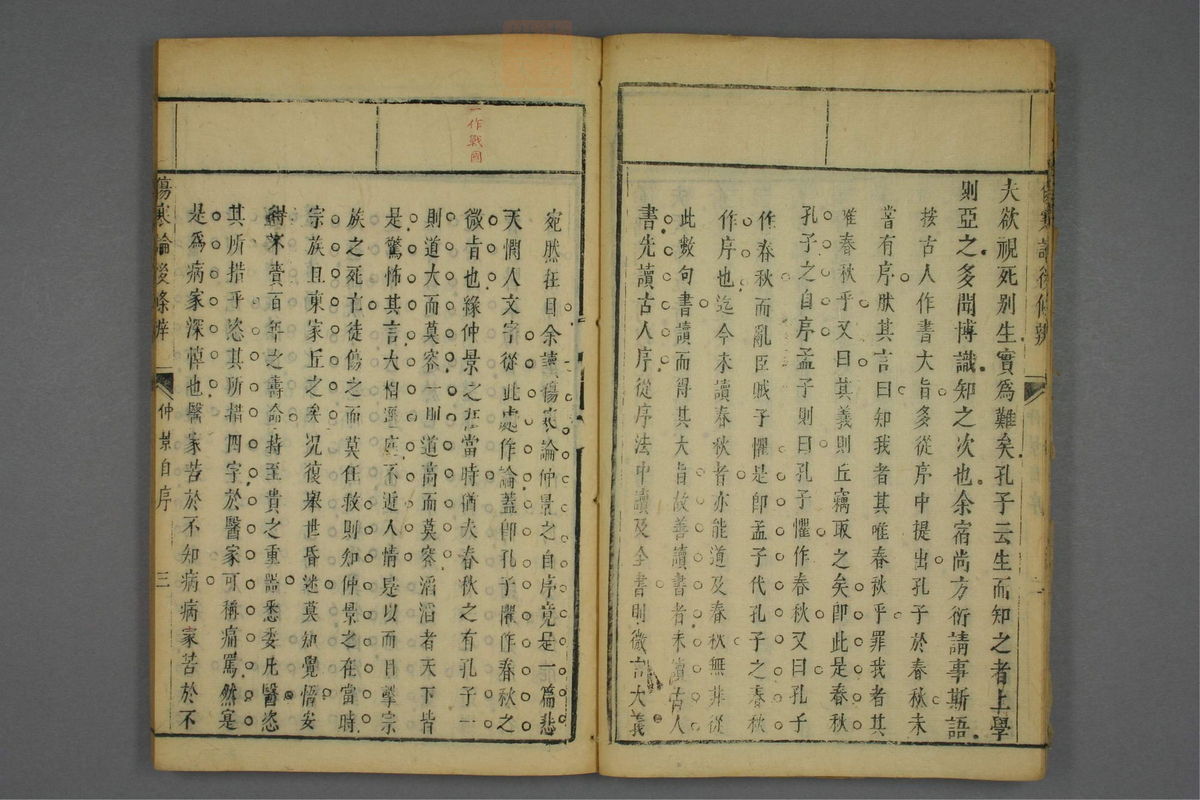 夫欲視死别生實爲難矣孔子云生而知之者上學
則亞之多聞博識知之次也余宿尚方術請事斯語
按古人作書大旨多從序中提出孔子於春秋未
嘗有序肰其言曰知我者其唯春秋乎罪我者其
唯春秋乎又曰其義則丘竊取之矣卽此是春秋
孔子之自序孟子則曰孔子懼作春秋又曰孔子
作春秋而亂臣賊子懼是卽孟子代孔子之春秋
作序也迄今未讀春秋者亦能道及春秋無非從
此數句書讀而得其大旨故善讀書者未讀古人
書先讀古人序從序法中讀及全書則微言大義
宛然在目余讀傷寒論仲景之自序竟是一篇悲
天憫人文字從此處作論蓋卽孔子懼作春秋之
微旨也緣仲景之在當時猶夫春秋之有孔子一
則道大而莫容一則道高而莫容滔滔者天下皆
是驚怖其言大相逕庭不近人情是以而目擊宗
族之死亡徒傷之而莫任救則知仲景之在當時
宗族且東家丘之矣况復舉世昏迷莫知覺悟安
得不賫百年之壽命持至貴之重器悉委凡醫恣
其所措乎恣其所措四字於醫家可稱痛罵然寔
是爲病家深悼也醫家苦於不知病病家苦於不
傷寒論後條辨
仲景自序
三
一作戰國